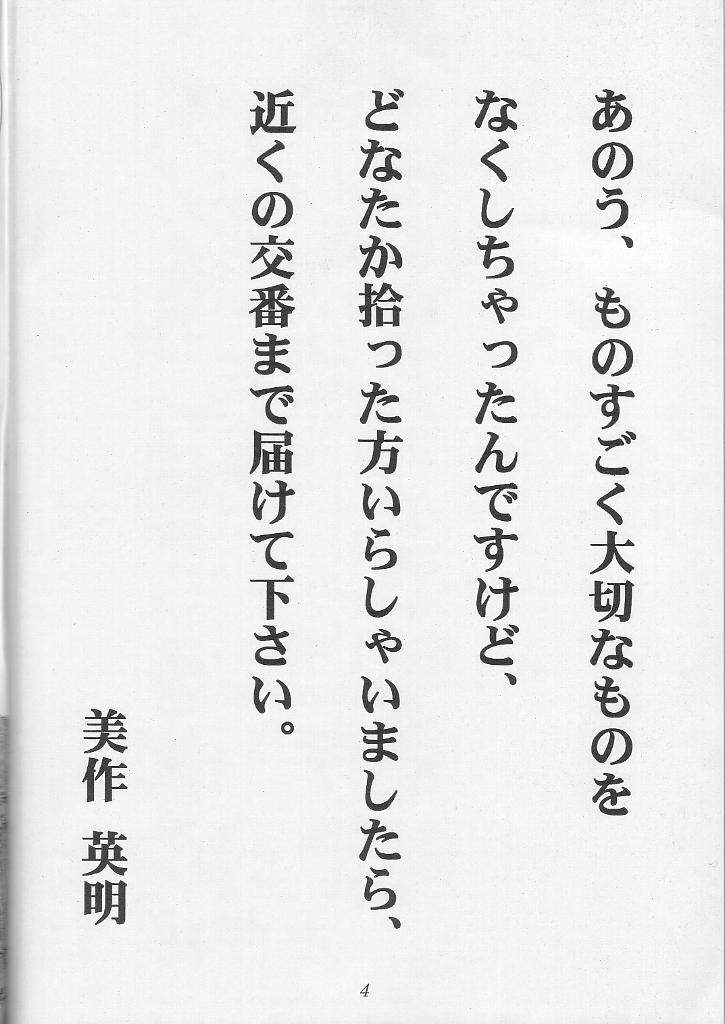 あのう、ものすごく大切なものを
なくしちゃったんですけど、
どなたか拾った方いらしゃいましたら、
近くの交番まで届けて下さい。
美作 英明
4